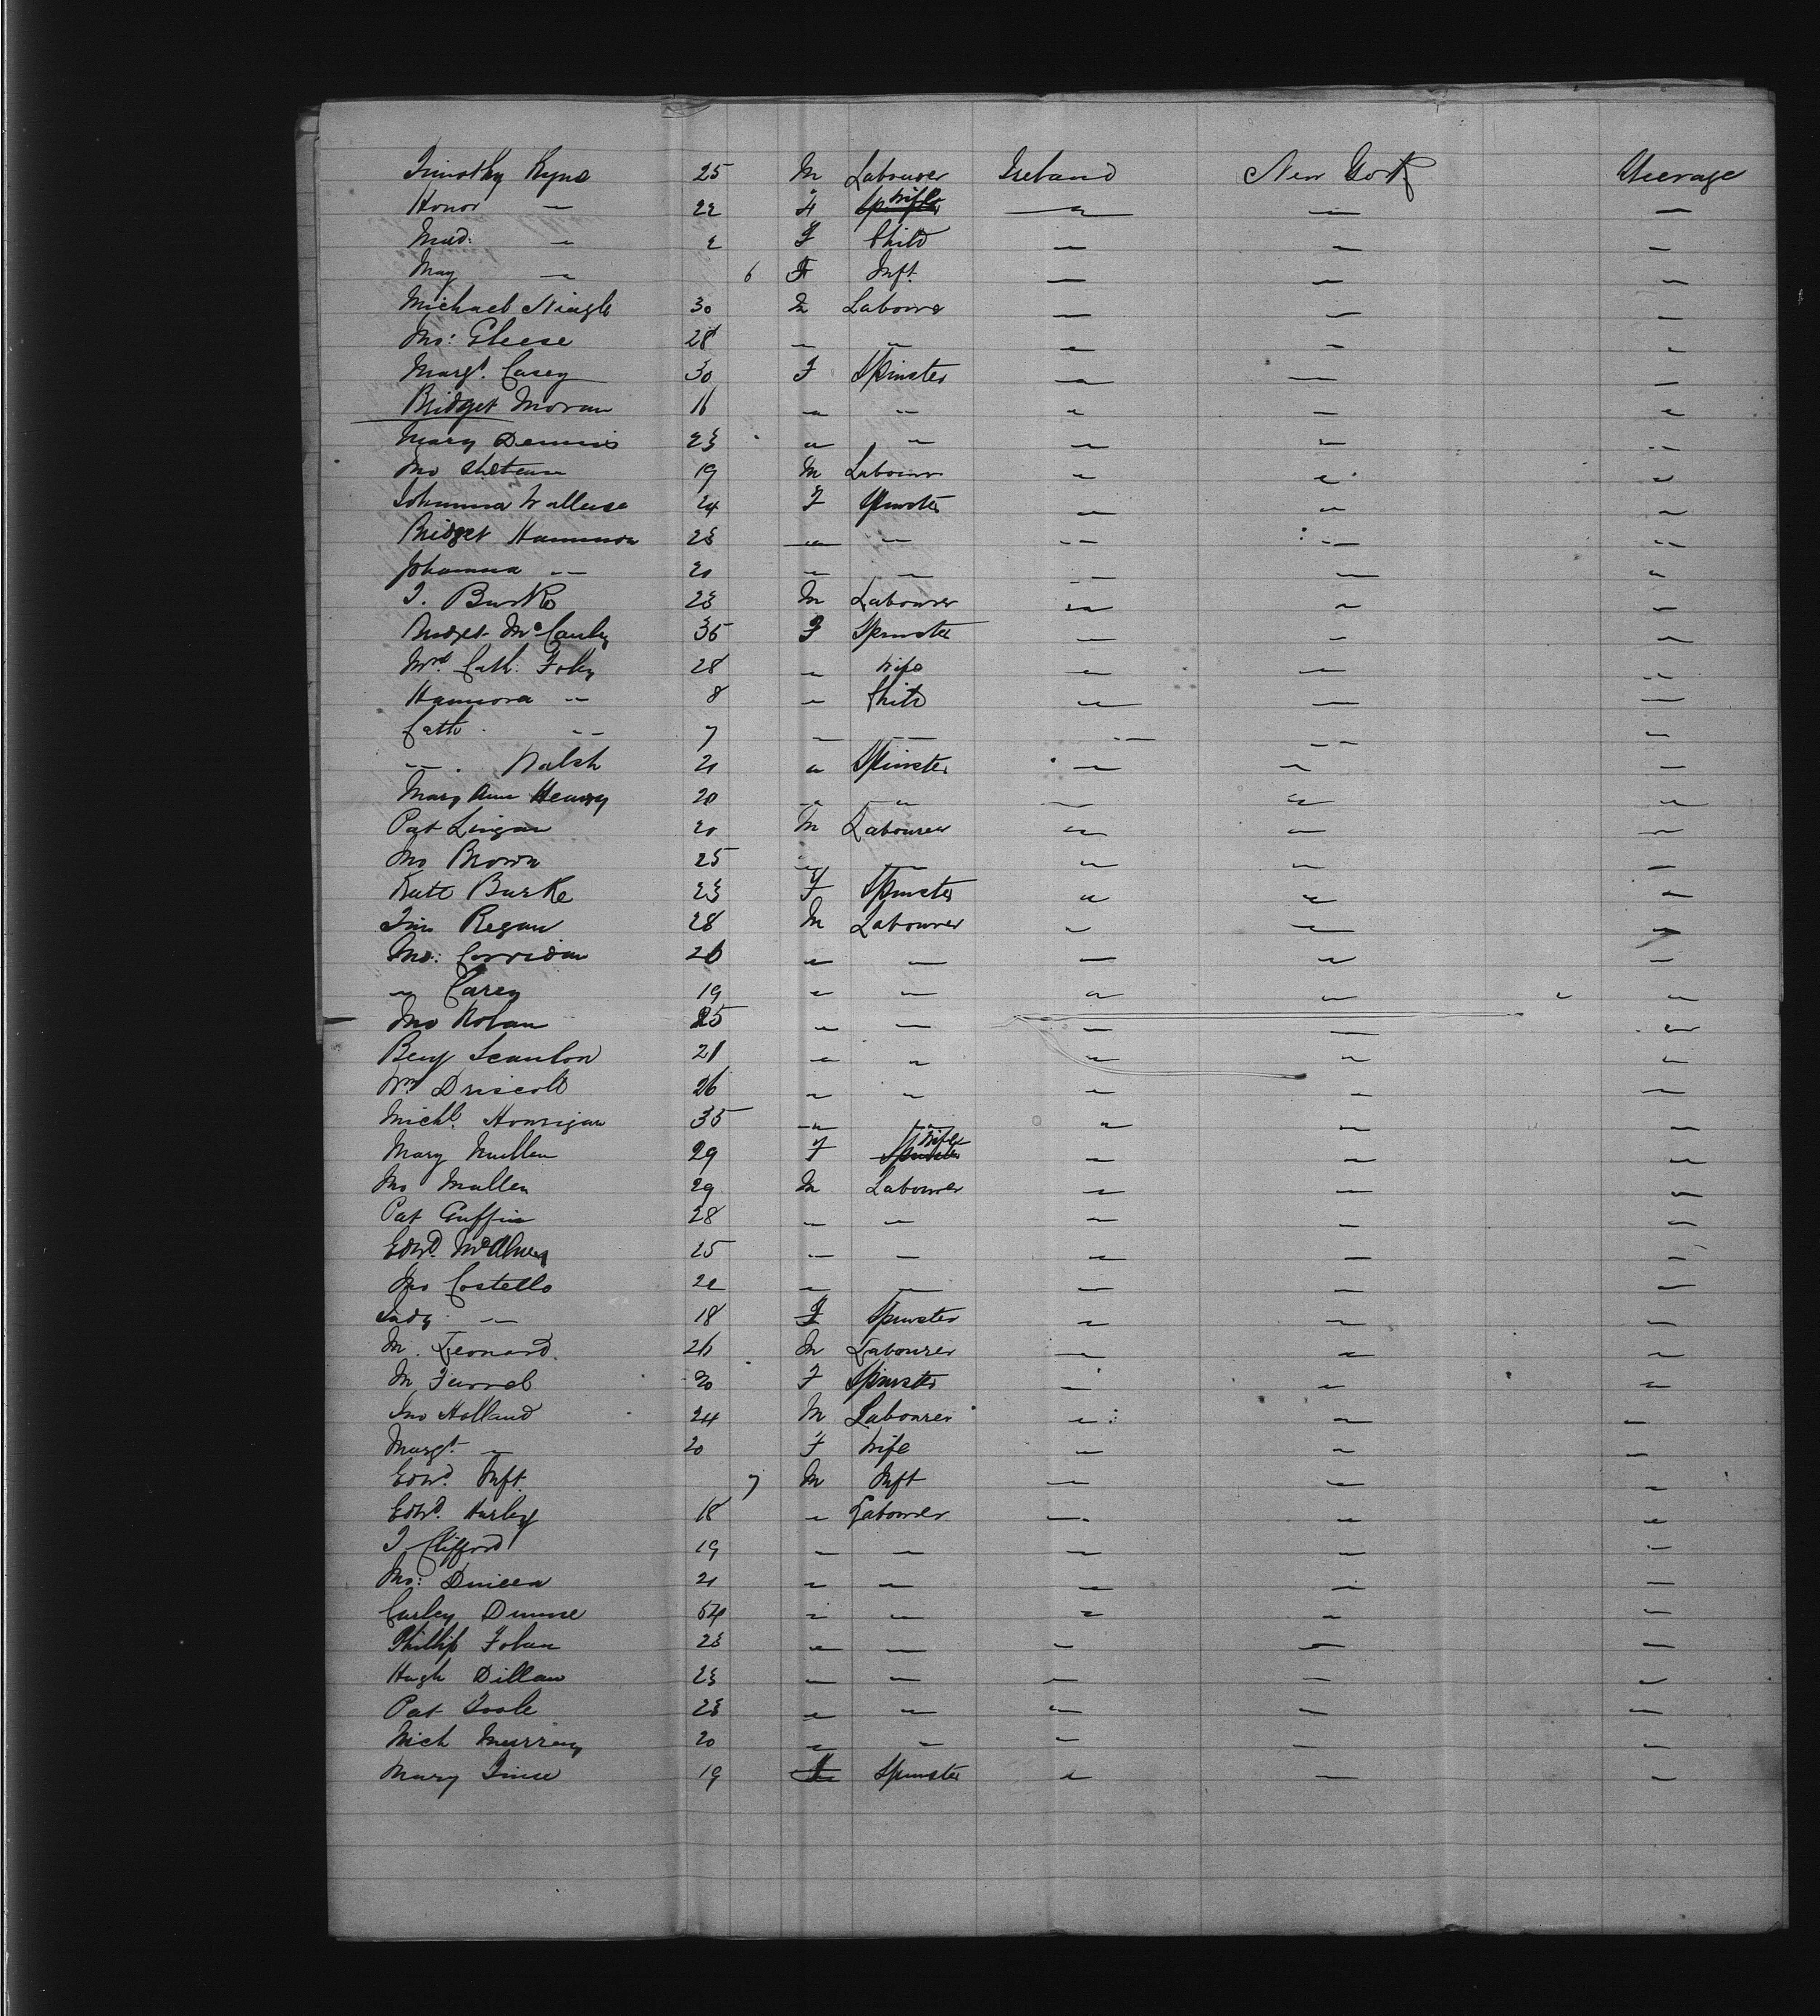 Timothy Ryne 25 M Labourer Ireland New York Steerage
Honor " 22 F Wife " " "
" 2 F Child " " "
May " 6 F Inft. " " "
Michael Neagle 30 M Labourer " " "
Jno: Gleese 28 " " " " "
Margt. Casey 30 F Spinster " " "
Bridget Moran 16 " " " " "
Mary Dennis 23 " " " " "
Jno 19 M Labourer " " "
Johanna Wallace 24 F Spinster " " "
Bridget 23 " " " " "
Johanna " 20 " " " " "
T. Burke 23 M Labourer " " "
Bridget McCauley 35 F Spinster " " "
Mrs. Cath: Foley 28 " Wife " " "
Hannora " 8 " Child " " "
Cath " 7 " " " " "
" Walsh 21 " Spinster " " "
Mary Ann Heavey 20 " " " " "
Pat Lingan 20 M Labourer " " "
Jno Brown 25 " " " " "
Kate Burke 23 F Spinster " " "
Tim Regan 28 M Labourer " " "
Jno: Corridan 26 " " " " "
" Carey 19 " " " " "
Jno Nolan 25 " " " " "
Benj Scanlon 21 " " " " "
Wm Driscoll 26 " " " " "
Michl. Honrigan 35 " " " " "
Mary Mullen 29 F Wife " " "
Jno Mullen 29 M Labourer " " "
Pat Griffin 28 " " " " "
Edwd. 25 " " " " "
Jno Costello 22 " " " " "
" 18 F Spinster " " "
M. Leonard. 26 M Labourer " " "
M Farrel 20 F Spinster " " "
Jno Holland 24 M Labourer " " "
Margt. " 20 F Wife " " "
Edwd. Inft. 7 M Inft " " "
Edwd. Hurley 18 " Labourer " " "
T. Clifford 19 " " " " "
Jno: 21 " " " " "
Curley Dunne 64 " " " " "
Phillip Folan 23 " " " " "
Hugh Dillan 23 " " " " "
Pat Toole 23 " " " " "
Mich Murray 20 " " " " "
Mary 19 F Spinster " " "